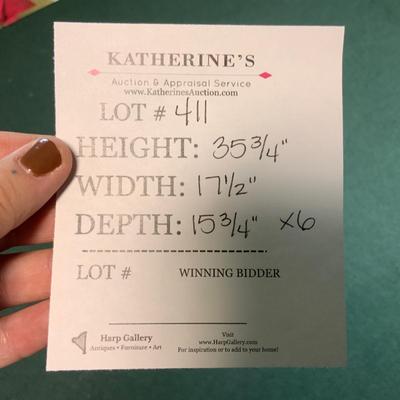 KATHERINE'S
Auction & Appraisal Service
www.KatherinesAuction.com
LOT # 411
HEIGHT: 35 3/4"
WIDTH: 17 1/2"
DEPTH: 15 3/4" x6
LOT # WINNING BIDDER
Harp Gallery
Antiques • Furniture • Art
Visit
www.HarpGallery.com
For inspiration or to add to your home!